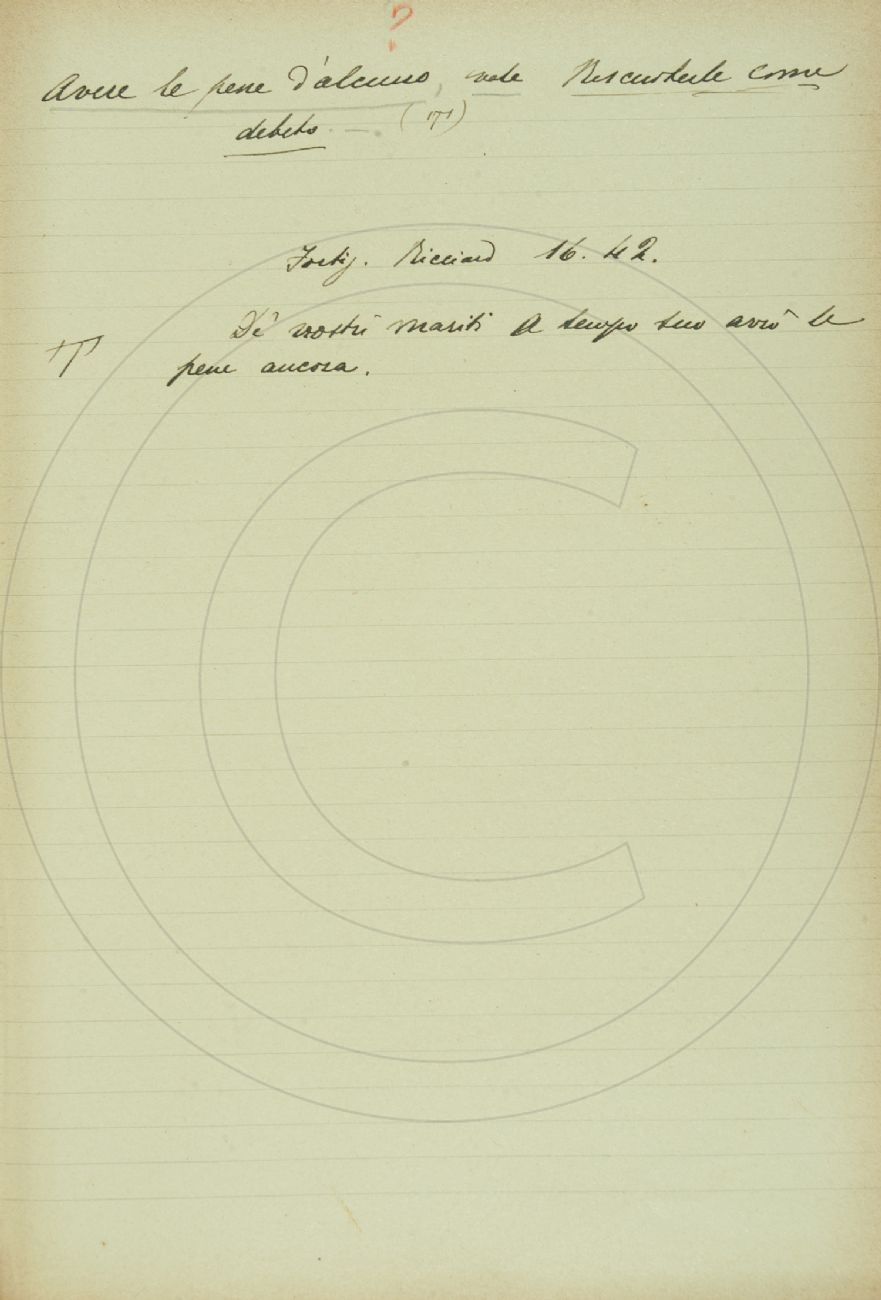 ?
Avere le pene d'alcuno, vale Riscuoterle come
debito. — (π)
Fortig. Ricciard 16. 42.
De' vostri mariti a tempo suo avrò le
π pene ancora.